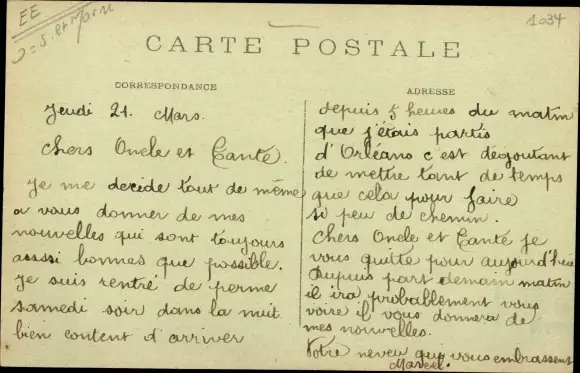 EE
= S. et Marne
1034
CARTE POSTALE
CORRESPONDANCE
Jeudi 21. Mars.
Chers Oncle et Tante.
Je me decide tout de même
a vous donner de mes
nouvelles qui sont toujours
asssi bonnes que possible.
Je suis rentré de perme
samedi soir dans la nuit
bien content d'arriver
ADRESSE
depuis 5 heures du matin
que j'étais partis
d'Orléans c'est dégoutant
de mettre tant de temps
que cela pour faire
si peu de chemin.
Chers Oncle et Tante je
vous quitte pour aujourd'hui
part demain matin
il ira probablement vous
voire il vous donnera de
mes nouvelles.
Votre neveu qui vous embrassent
Marcel.